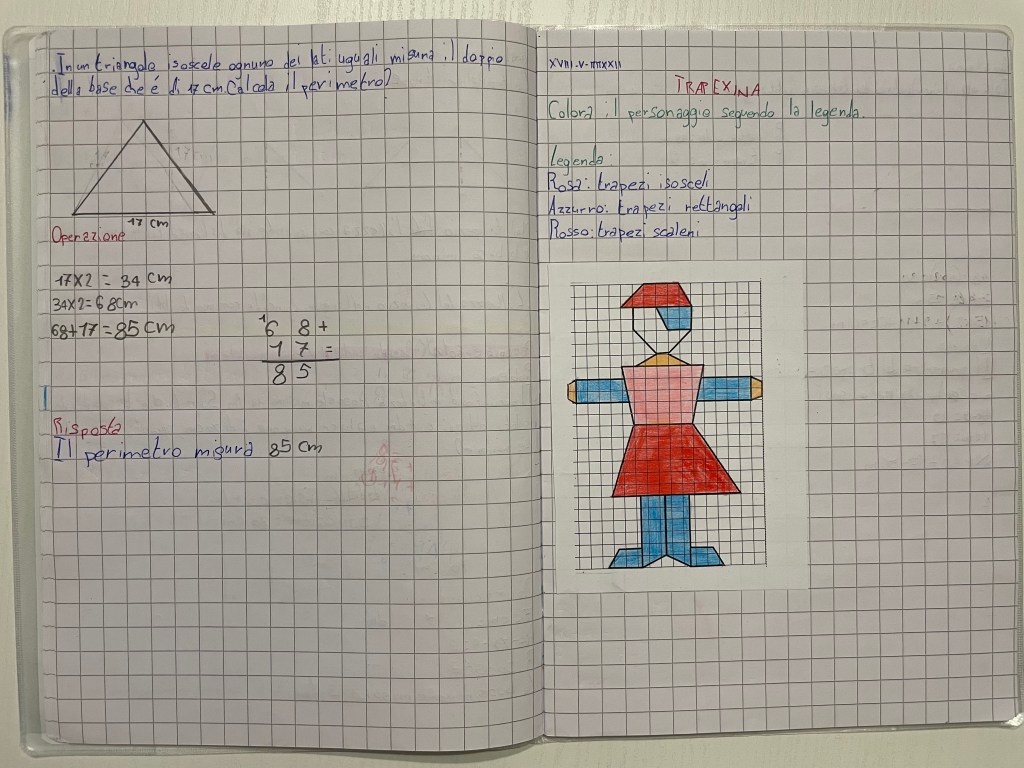 In un triangolo isoscele ognuno dei lati uguali misura il doppio
della base che é di 17 cm. Calcola il perimetro?
17 cm
Operazione
17x2 = 34 cm
34x2=68cm
68+17=85cm
1
6 8+
1 7=
8 5
Risposta
Il perimetro misura 85 cm
TRAPEXINA
Colora il personaggio seguendo la legenda.
Legenda:
Rosa: trapezi isosceli
Azzurro: trapezi rettangoli
Rosso: trapezi scaleni